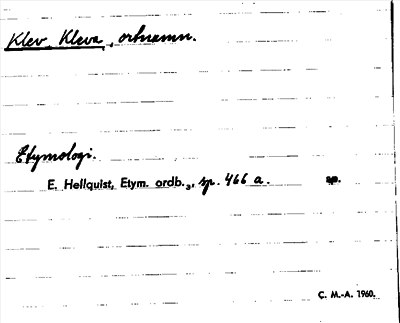 Klev, Kleva, ortnamn.
Etymologi.
E. Hellquist, Etym. ordb.₃, sp. 466 a.
C. M.-A. 1960.